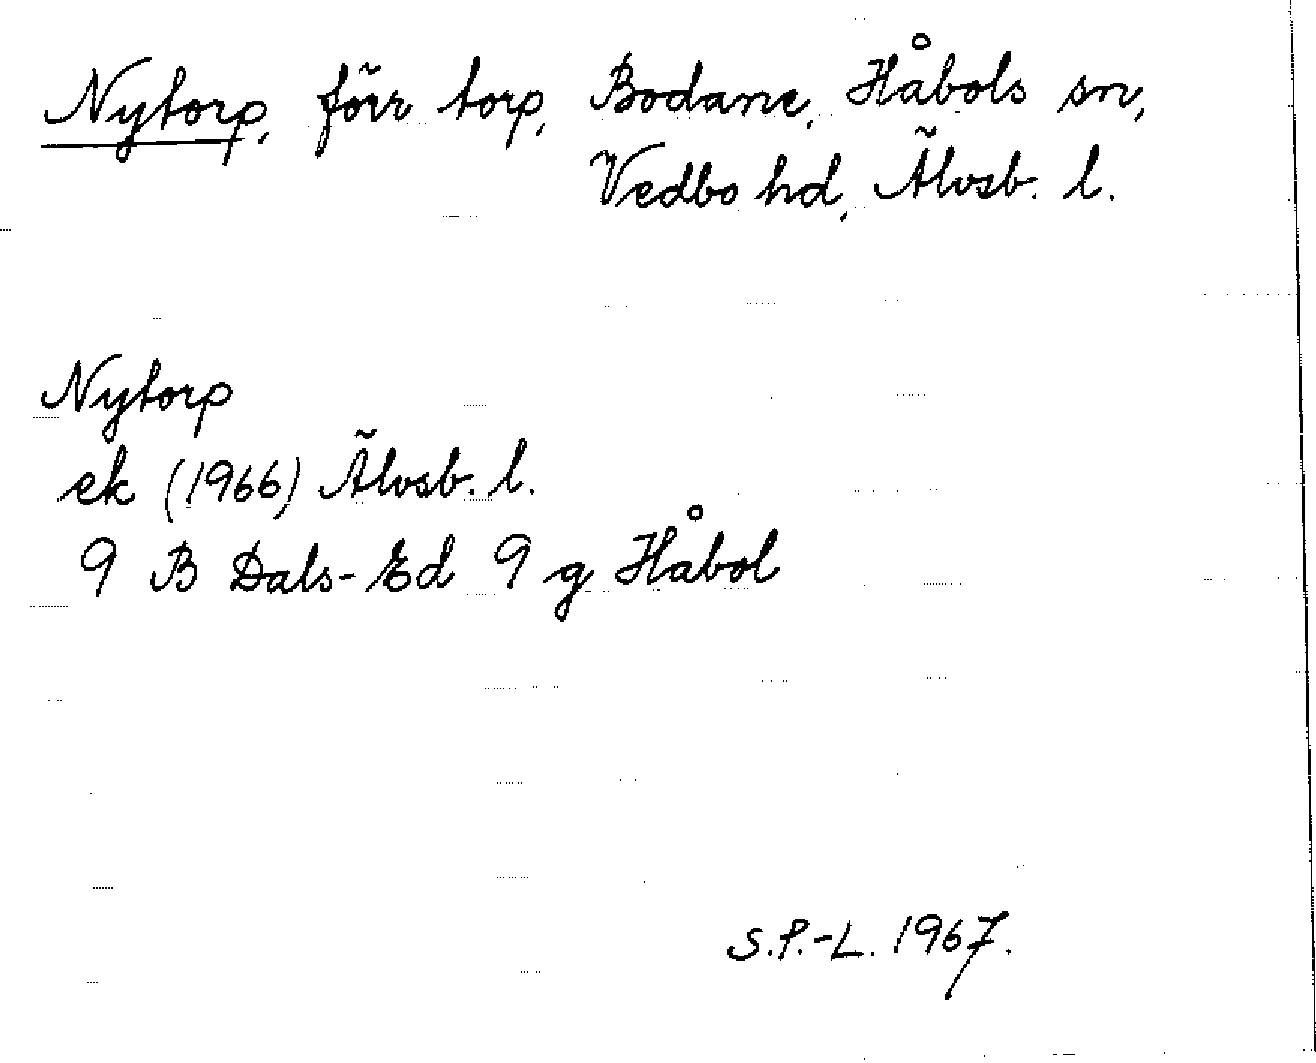 Nytorp, förr torp, Bodane, Håbols sn,
Vedbo hd, Älvsb. l.
Nytorp
ek (1966) Älvsb. l.
9 B Dals-Ed 9 g Håbol
S.P.-L. 1967.